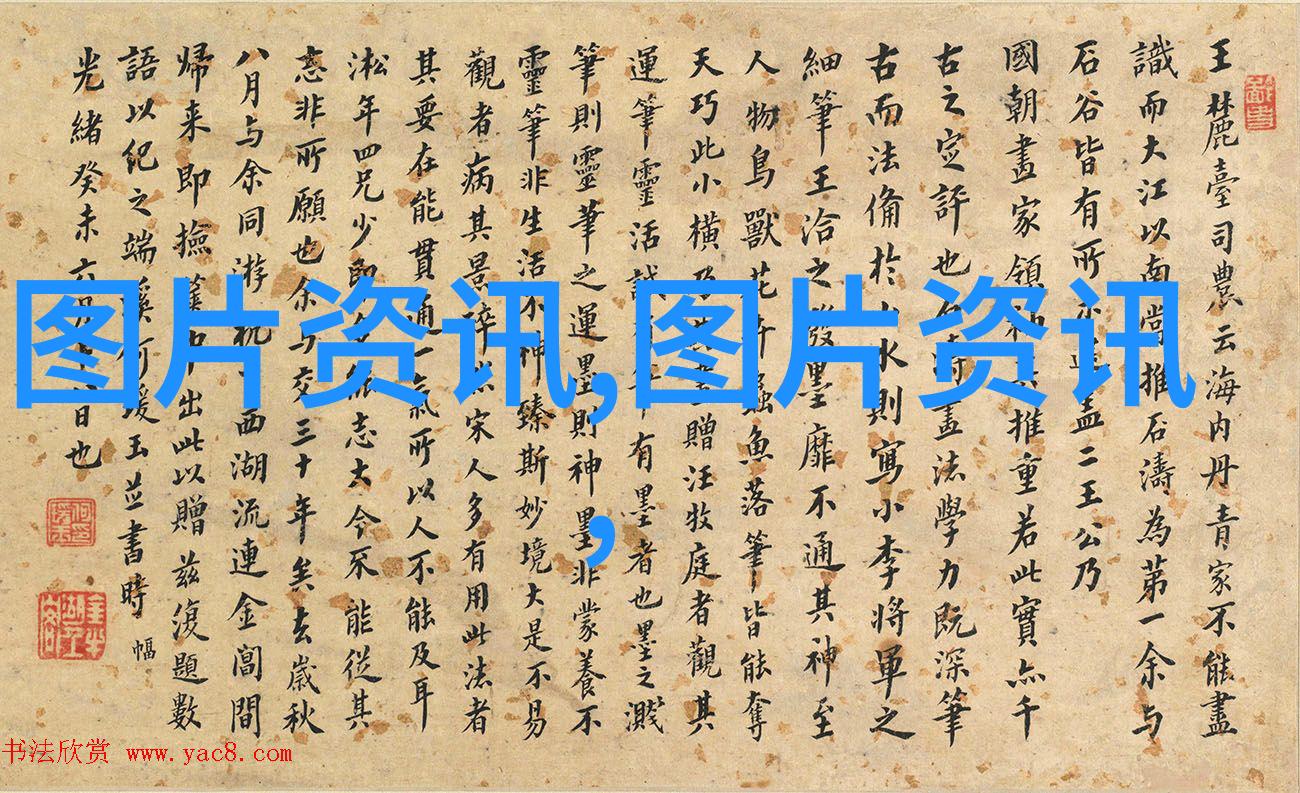 王麓臺司農云海内丹青家不能盡
識而大江以南當推石濤為第一余与
石谷皆有所不逮盖二王公乃
國朝畫家領袖其推重若此實亦千
古之定評也余時畫法學力既深筆
古而法備於山水則寫小李將軍之
細筆王洽之潑墨靡不通其神至
人物鳥獸花卉蟲魚落筆皆能奪
天巧此小橫乃 贈汪牧庭者觀其
運筆靈活 有墨者也墨之濺
筆則靈筆之運墨則神墨非蒙養不
靈筆非生活不神臻斯妙境大是不易
觀者病其景碎然宋人多有用此法者
其要在能貫通一氣所以人不能及耳
淞年四兄少 志去今不能從其
志非所願也余与交三十年矣去歲秋
八月与余同游 西湖流連金閶間
歸来即撿篋中出此以贈兹復題數
語以纪之端溪何瑗玉并書時
幅
光緒癸未六月 日也
图片资讯,图片资讯
,
书法欣赏 www.yac8.com